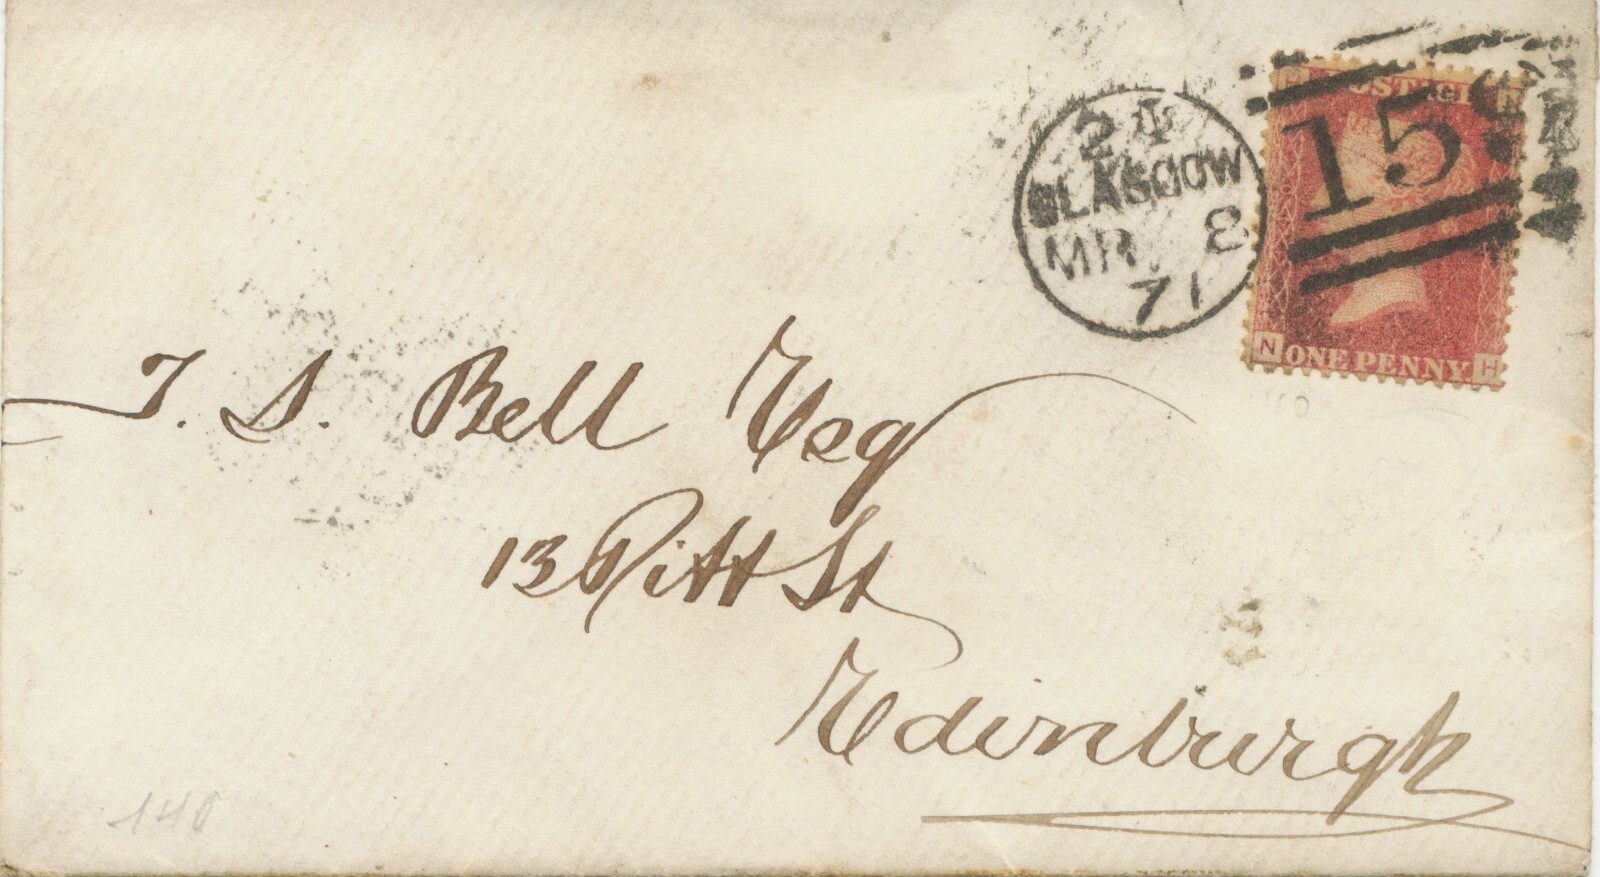 24
GLASGOW
MR 8
71
159
POSTAGE
N ONE PENNY H
T. S. Bell Esq
13 Pitt St
Edinburgh
140